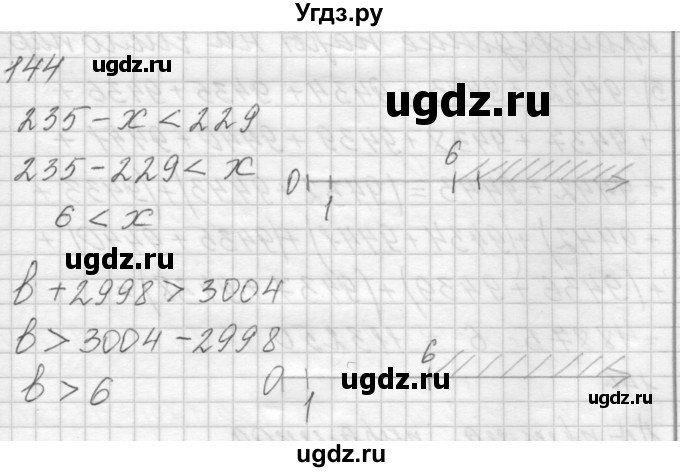 Угдз.ру
144
ugdz.ru
ugdz.ru
235 - x < 229
235 - 229 < x
0 1 6
6 < x
ugdz.ru
b + 2998 > 3004
b > 3004 - 2998
b > 6
0 1 6
ugdz.ru
ugdz.ru
ugdz.ru